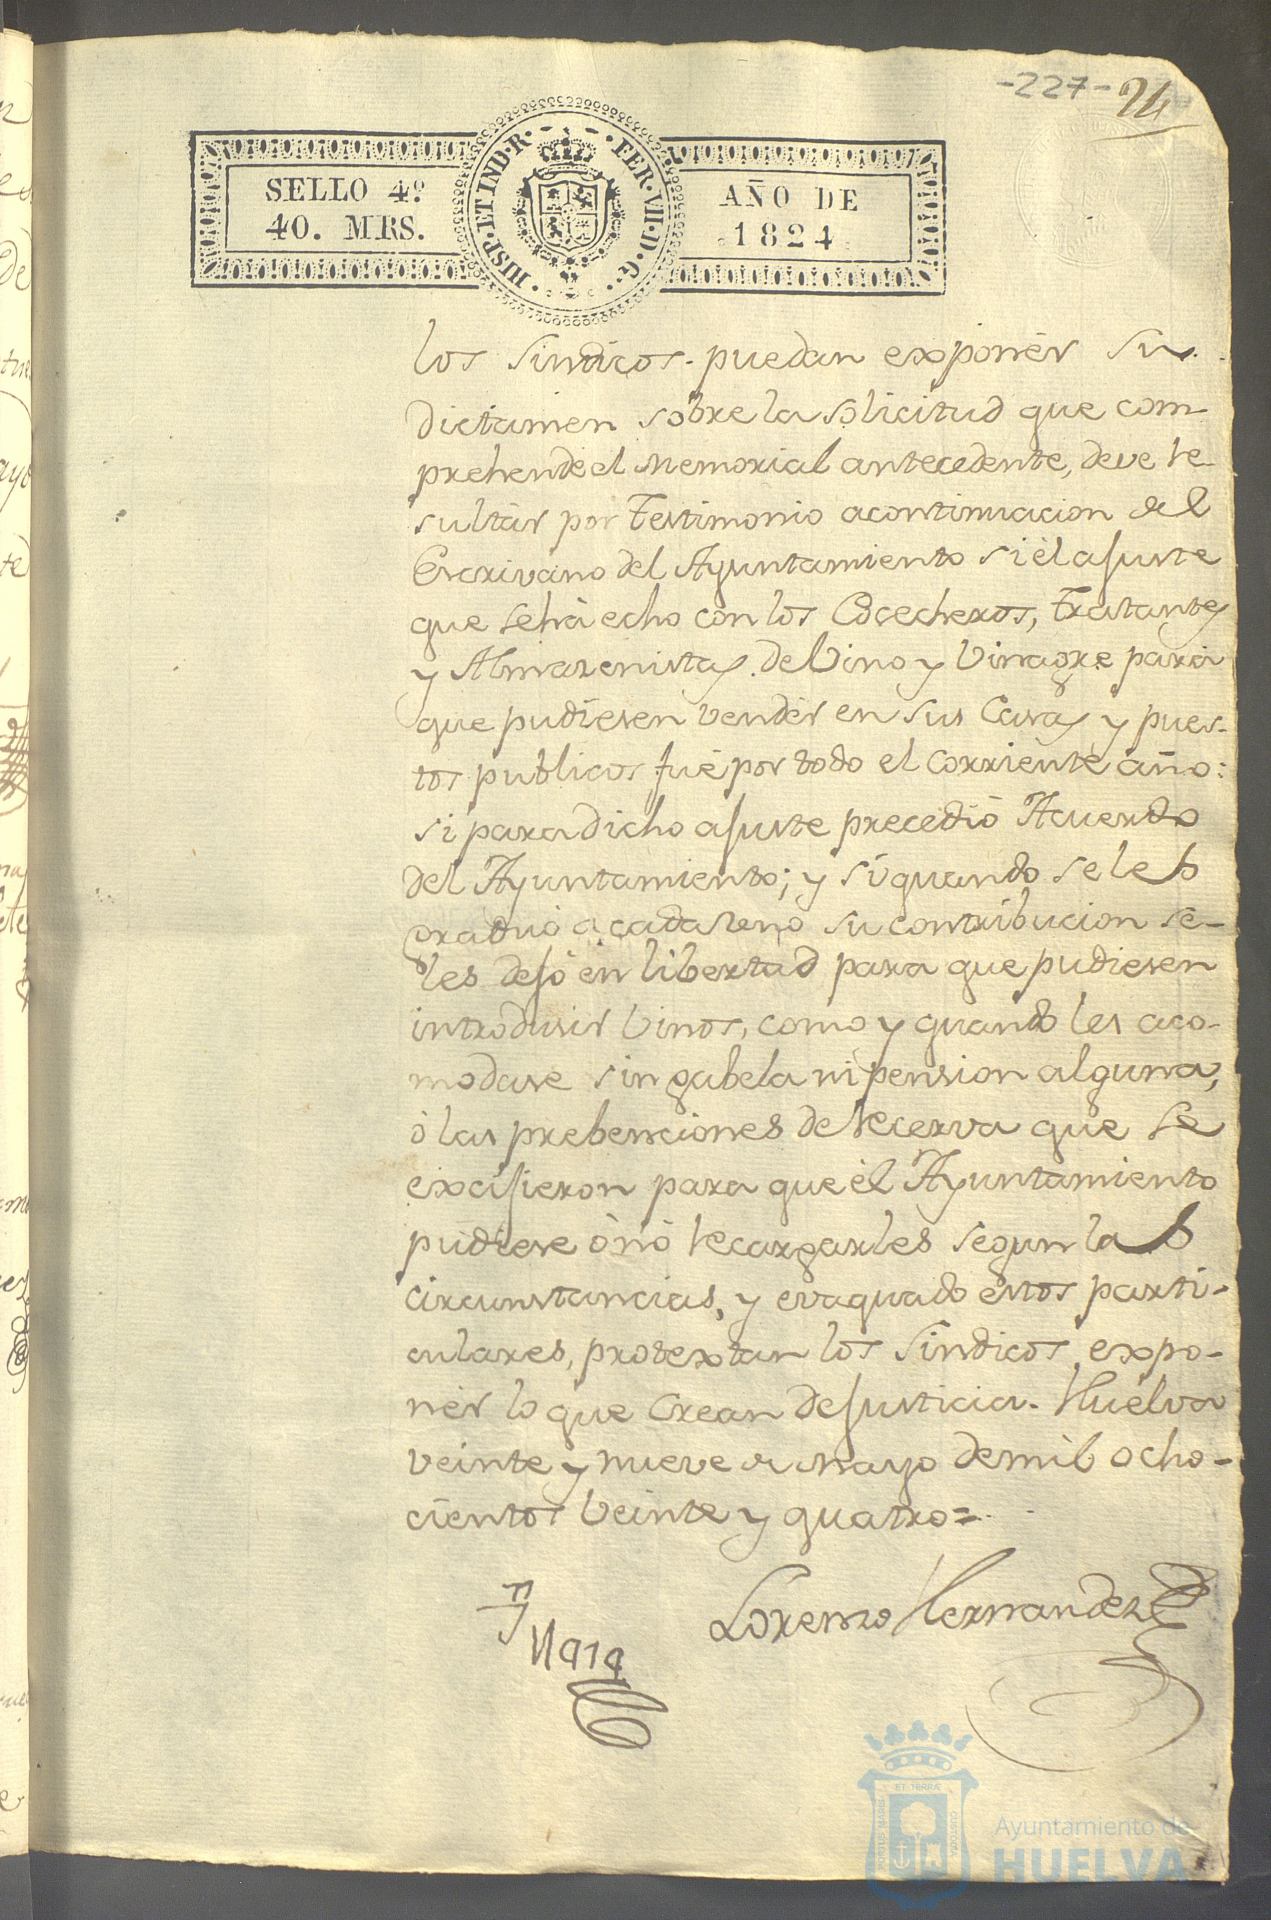 -227- 24
SELLO 4º
40. MRS.
HISP. ET IND. R. FER. VII. D. G.
AÑO DE
1824
los Sindicos puedan exponér su
dictamen sobre la solicitud que com-
prehende el Memorial antecedente, deve re-
sultár por Testimonio acontinuacion del
Escrivano del Ayuntamiento si él ajuste
que se há echo con los Cosecheros, Tratantes
y Almazenistas de Vino y Vinagre para
que pudiesen vendér en sus Casas y pues-
tos publicos fué por todo el corriente año:
si para dicho ajuste precedió Acuerdo
del Ayuntamiento; y si quando se les
graduó a cada uno su contribucion se-
les dejó en libertad para que pudiesen
introdusir Vinos, como y quando les aco-
modase sin gabela ni pension alguna,
ó las prebenciones de recerva que se
excijieron para que él Ayuntamiento
pudiese ó nó recargarles segun las
circunstancias, y evaquado estos parti-
culares, protextan los Sindicos expo-
nér lo que Crean de justicia. Huelva
veinte y nueve de mayo de mil ocho-
cientos Veinte y quatro=
Lorenzo Hernandez
ET TERRÆ
CUSTODIA
PORTUS MARIS
Ayuntamiento de
HUELVA